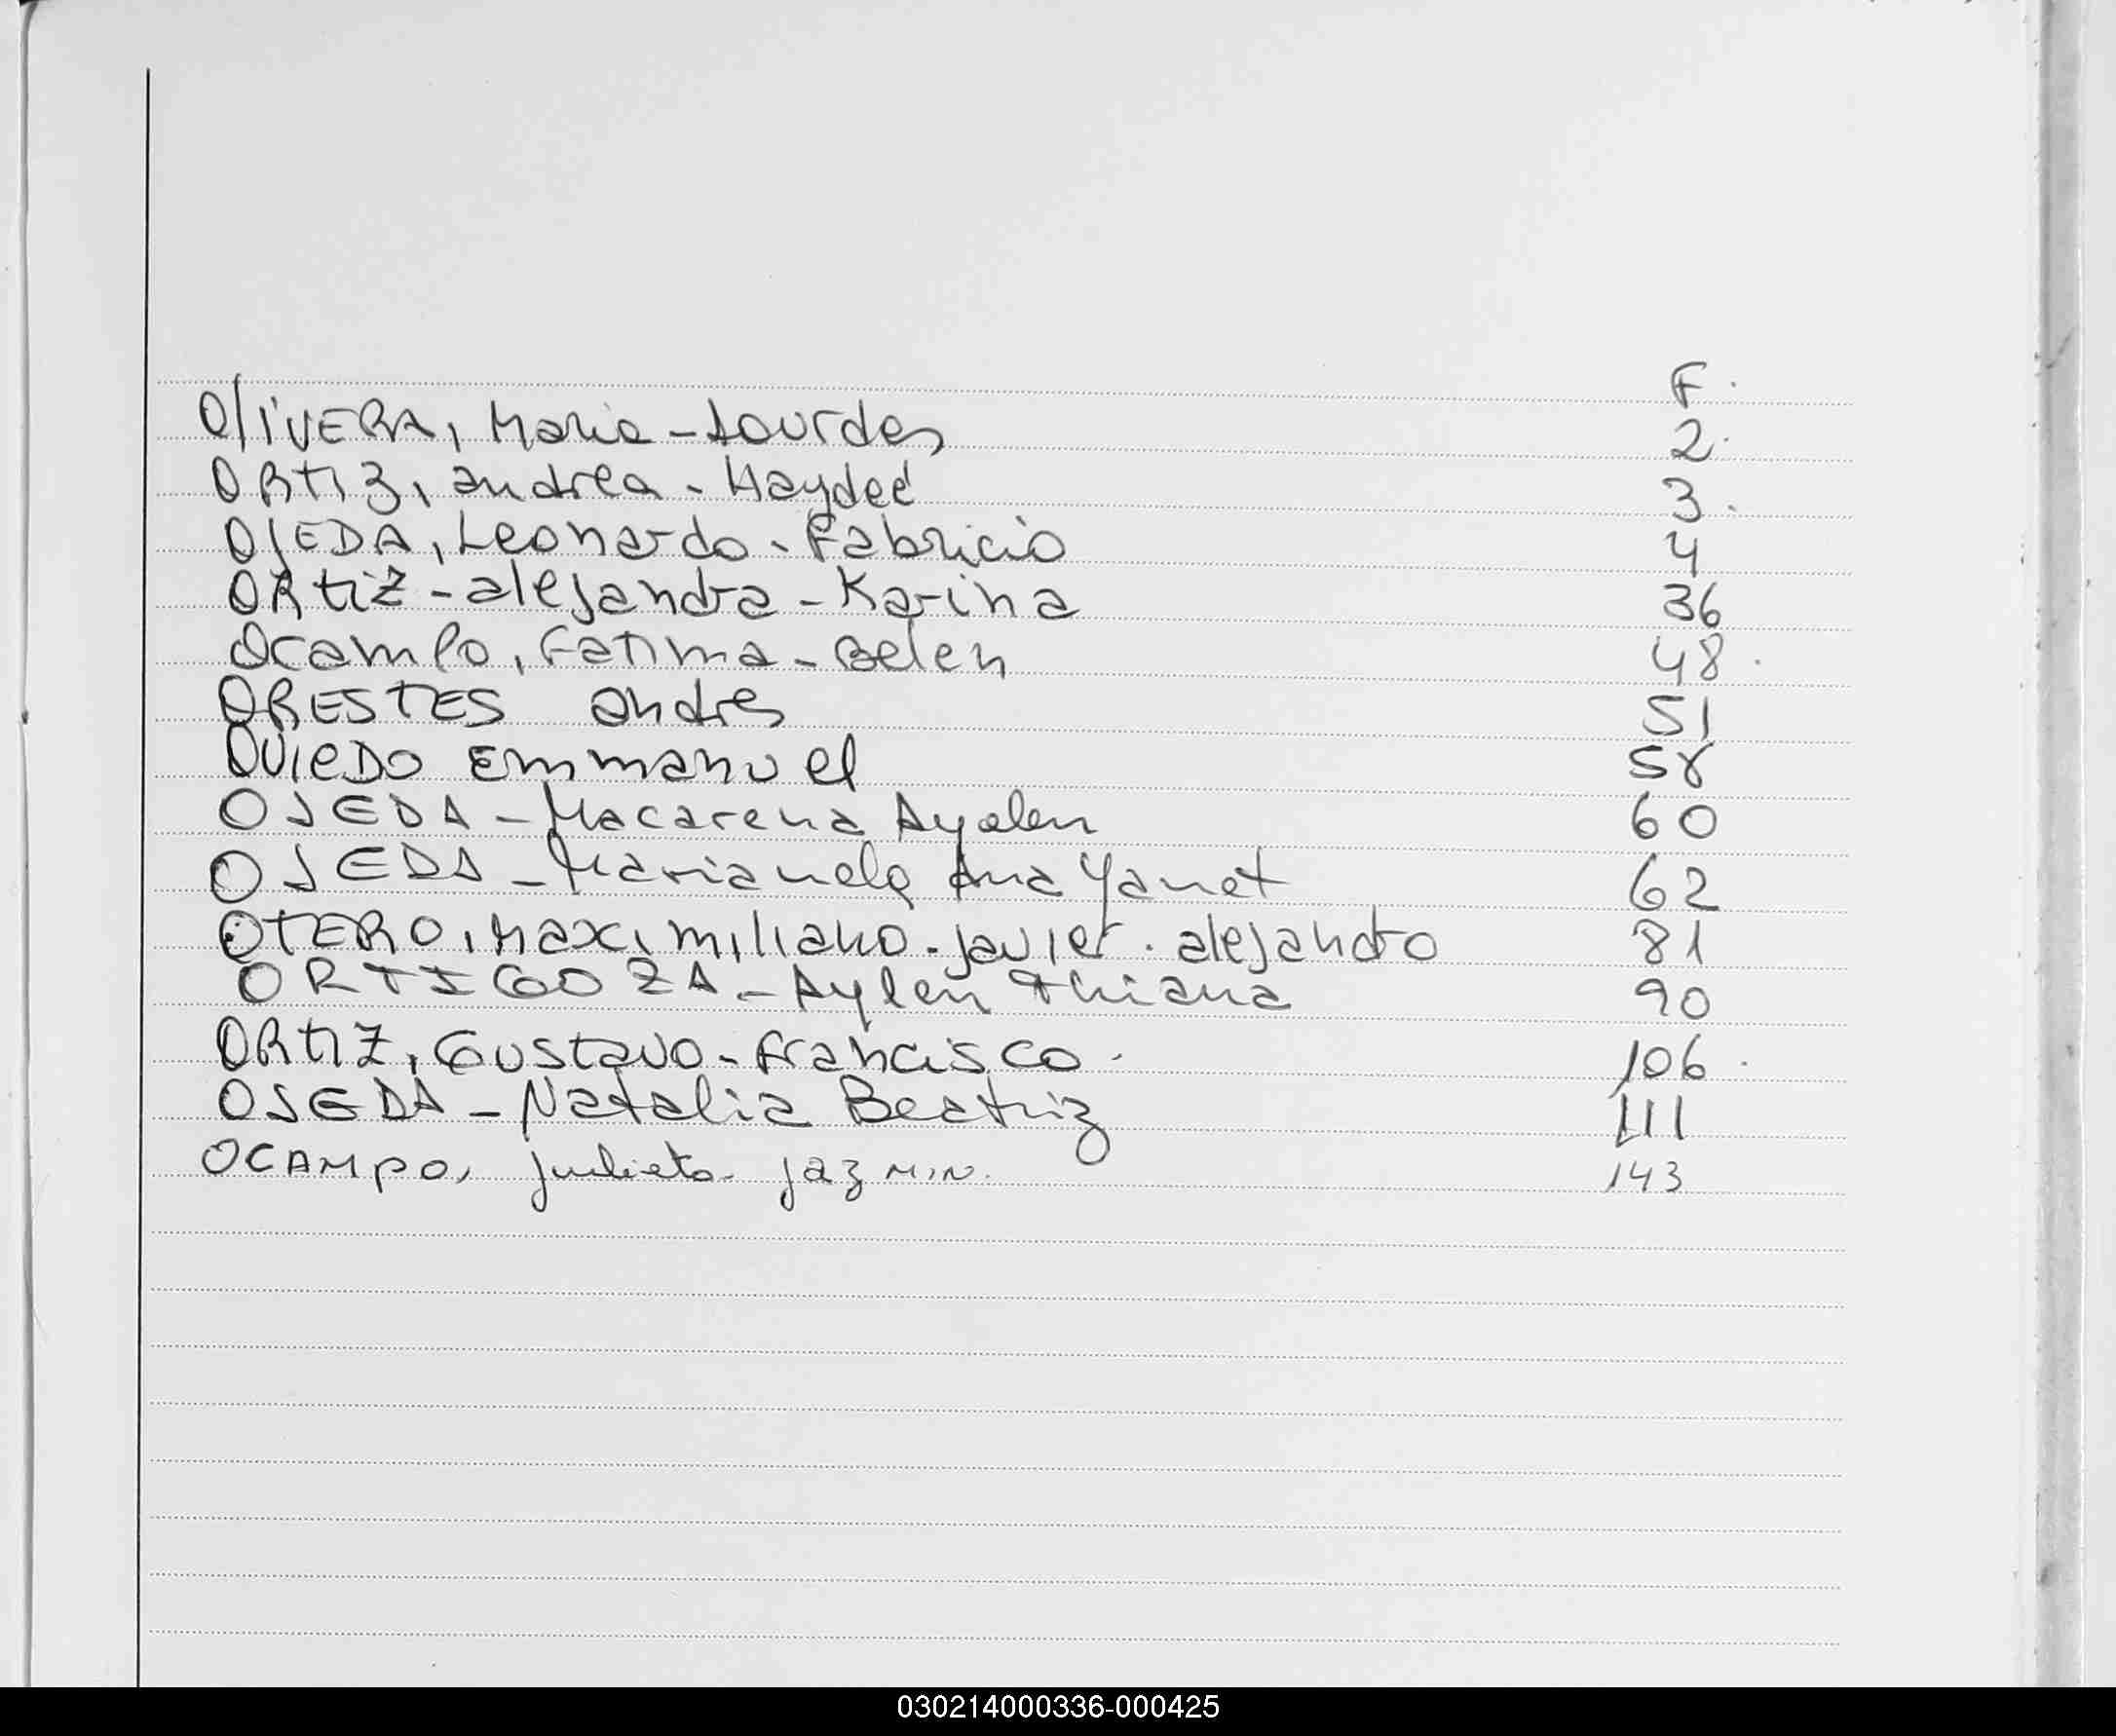 F.
OlIVERA, Maria - Lourdes 2.
ORTIZ, andrea - Haydeé 3.
OJEDA, Leonardo - Fabricio 4
ORtiZ - alejandra - Karina 36
Ocampo, Fatima - Belen 48.
ORESTES andres 51
OVIEDO Emmanuel 58
OJEDA - Macarena Ayelen 60
OJEDA - Marianela Ana Yanet 62
OTERO, Maximiliano - javier - alejandro 81
ORTIGOZA - Aylen Thiana 90
ORTIZ, Gustavo - Francisco - 106.
OJEDA - Natalia Beatriz 111
OCAMPO, Julieta - jazmin. 143
030214000336-000425